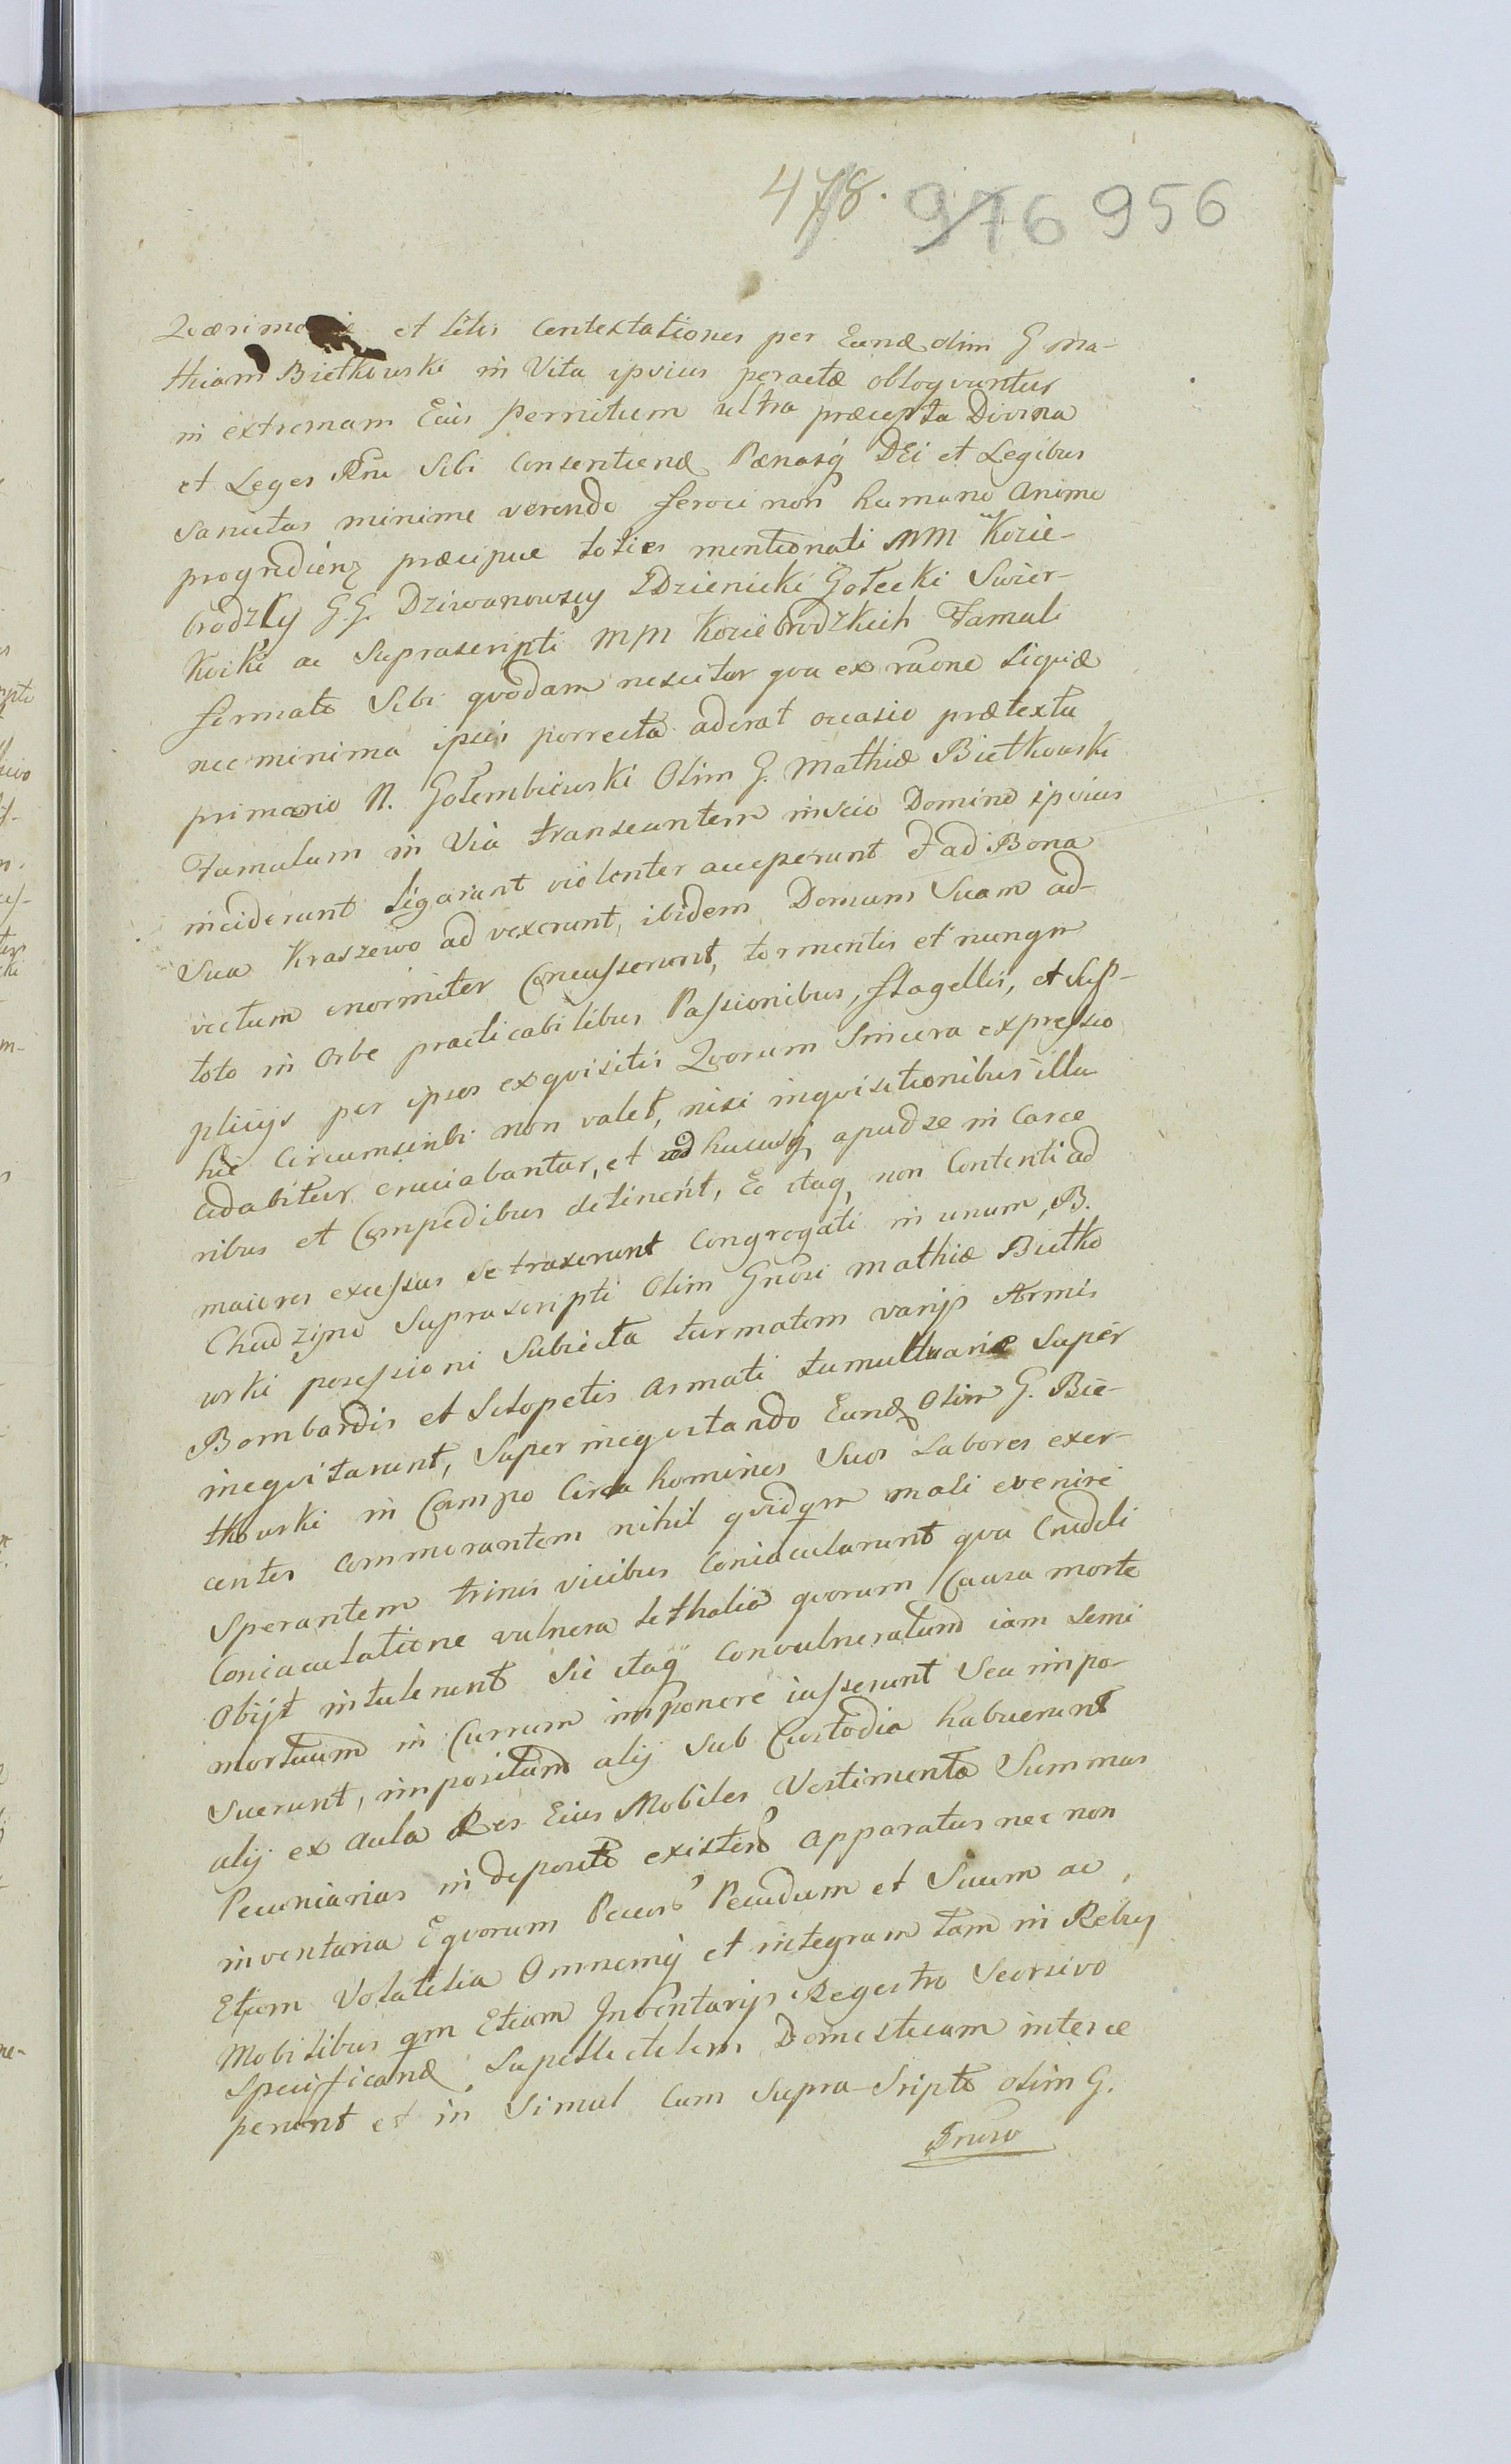 478. 976 956
Quærimoniæ et litis Contestationes per Eund olim G Ma-
thiam Bietkowski in Vita ipsius peractæ obloquuntur
in extremam Eius pernitiem ultra præcepta Divina
et Leges Rni Sibi Consentiend Pænasq DEi et Legibus
sancitas minime verendo feroci non humano Animo
progrediend præcipue toties mentionati MM Kozie-
brodzcy G.G. Dziwanowscy Zdzienicki Gołecki Swier-
kocki ac Suprascripti MM Koziebrodzkich Famuli
formato Sibi quodam nescitur qua ex raone siquid
nec minima ipsis porrecta aderat occasio prætextu
primario N. Gołembiewski Olim G. Mathiæ Bietkowski
Famulum in Via transeuntem inscio Domino ipsius
inciderunt ligarunt violenter acceperunt et ad Bona
Sua Kraszewo ad vexerunt, ibidem Domum Suam ad-
vectum enormiter Concusserunt, tormentis et nunqm
toto in Orbe practicabilibus Passionibus, flagellis, et Sup-
plicijs per ipsos exquisitis Quorum Sincera expressio
hic Circumscribi non valet, nisi inquisitionibus illu
cidabitur cruciabantur, et ad hucusq apud se in Carce
ribus et Compedibus detinent, Eo itaq non Contenti ad
maiores excessus se traxerunt Congregati in unum, B.
Chudzyno Suprascripti Olim Gnosi Mathiæ Bietko
wski possessioni Subiecta turmatim varijs Armis
Bombardis et Sclopetis Armati tumultuarie Super
inequitarunt, Super inequitando Eund Olim G. Bie-
tkowski in Campo Circa homines Suos Labores exer-
centes Commorantem nihil quidqm mali evenire
Sperantem trinis vicibus Coniacularunt qua Crudeli
Coniaculatione vulnera lethalia quorum Causa morte
Obijt intulerunt Sic itaq Convulneratum iam Semi
mortuum in Currum imponere iusserunt Seu impo-
suerunt, impositum alij Sub Custodia habuerunt
alij ex Aula Res Eius Mobiles Vestimenta Summas
Pecuniarias in deposito existen Apparatus nec non
inventaria Equorum Pecors Pecudum et Suum ac
Etiam Volatilia Omnemq et integram tam in Rebus
Mobilibus qm Etiam Inventarijs Regestro Seorsivo
Specificand Supellectilem Domesticam interce
perunt et in Simul Cum Supra-Sripto olim G.